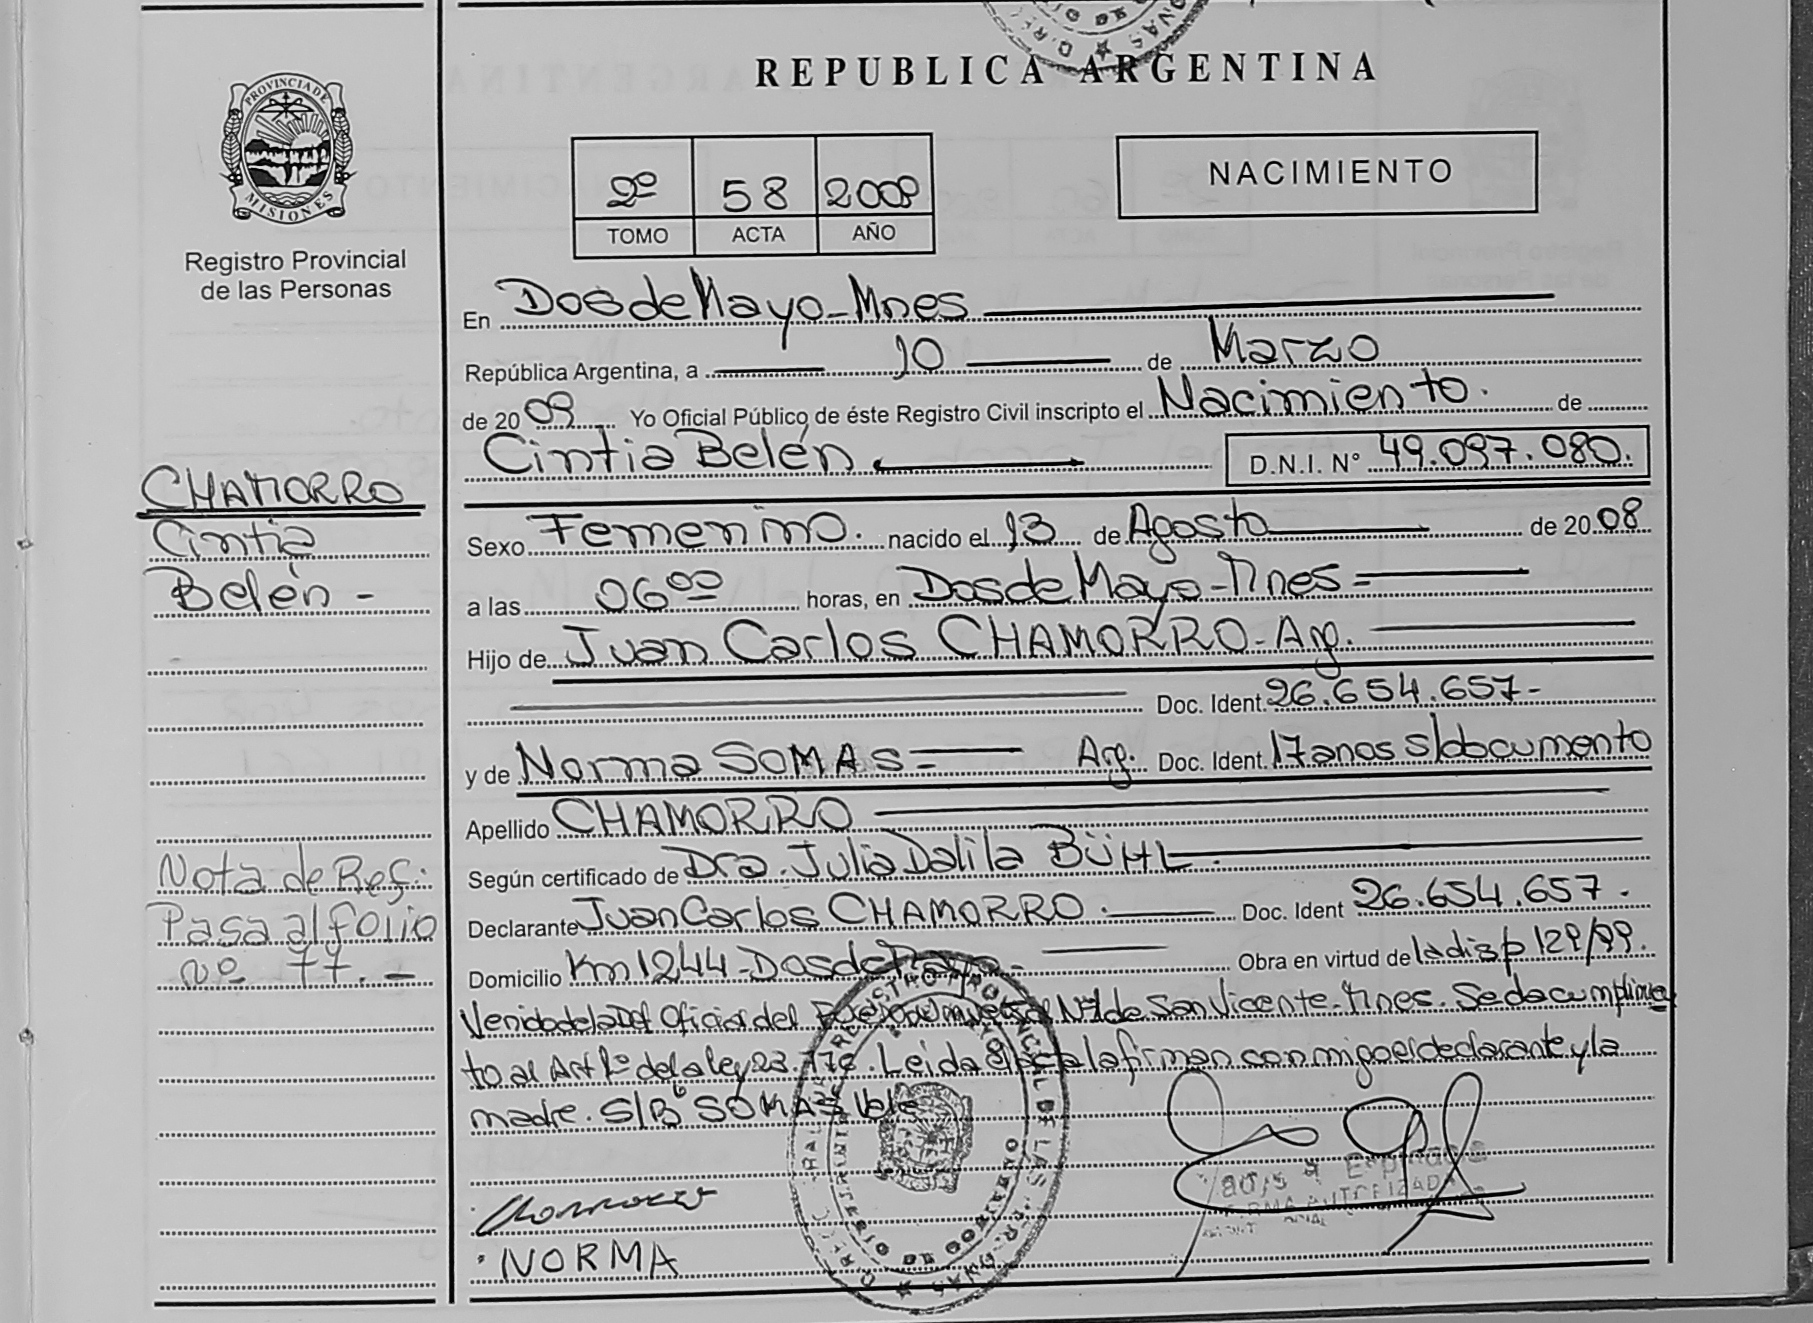 REPUBLICA ARGENTINA
PROVINCIA DE
MISIONES
Registro Provincial
de las Personas
2º 58 2009
TOMO ACTA AÑO
NACIMIENTO
En Dos de Mayo-Mnes
República Argentina, a 10 de Marzo
de 2009 Yo Oficial Público de éste Registro Civil inscripto el Nacimiento. de
Cintia Belén D.N.I. Nº 49.097.080.
CHAMORRO
Cintia
Belén -
Sexo Femenino. nacido el 13 de Agosto de 2008
a las 06⁰⁰ horas, en Dos de Mayo-Mnes=
Hijo de Juan Carlos CHAMORRO-Arg.
Doc. Ident. 26.654.657-
y de Norma SOMAS= Arg. Doc. Ident. 17 anos s/documento
Apellido CHAMORRO
Según certificado de Dra. Julia Dalila BÜHL.
Declarante Juan Carlos CHAMORRO. Doc. Ident 26.654.657.
Domicilio Km 1244-Dos de Mayo- Obra en virtud de la disp 129/99.
Nota de Ref:
Pasa al folio
nº 77.-
Venida de la Del Oficial del Nº1 de San Vicente-Mnes. Se da cumplimien
to al Art 1º de la ley 23.776. Leída el acta la firman conmigo el declarante y la
madre. S/Bº SOMAS Vale
Chamorro
NORMA